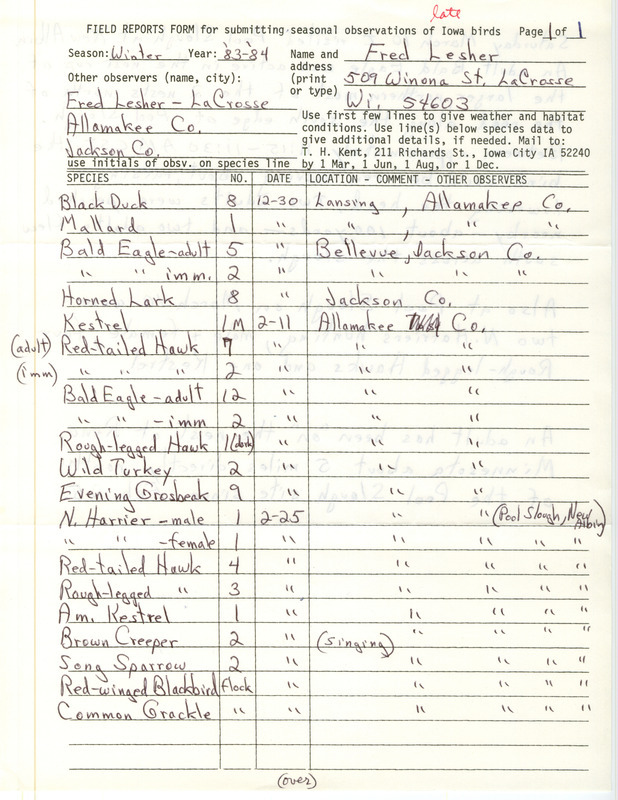 late
FIELD REPORTS FORM for submitting seasonal observations of Iowa birds Page 1 of 1
Season: Winter Year: '83-'84 Name and Fred Lesher
address
Other observers (name, city): (print 509 Winona St, LaCrosse
or type)
Fred Lesher - LaCrosse Wi. 54603
Allamakee Co. Use first few lines to give weather and habitat
conditions. Use line(s) below species data to
Jackson Co. give additional details, if needed. Mail to:
T. H. Kent, 211 Richards St., Iowa City IA 52240
use initials of obsv. on species line by 1 Mar, 1 Jun, 1 Aug, or 1 Dec.
SPECIES NO. DATE LOCATION - COMMENT - OTHER OBSERVERS
Black Duck 8 12-30 Lansing, Allamakee Co.
Mallard 1 " " , " "
Bald Eagle-adult 5 " Bellevue, Jackson Co.
" " imm. 2 " " " "
Horned Lark 8 " Jackson Co.
Kestrel 1M 2-11 Allamakee Co.
(adult) Red-tailed Hawk 7 " " "
(imm) " " " 2 " " "
Bald Eagle-adult 12 " " "
" " -imm 2 " " "
Rough-legged Hawk 1(dark) " " "
Wild Turkey 2 " " "
Evening Grosbeak 9 " " "
N. Harrier -male 1 2-25 " " (Pool Slough, New Albin)
" " -female 1 " " " " "
Red-tailed Hawk 4 " " " " "
Rough-legged " 3 " " " " "
Am. Kestrel 1 " " " " "
Brown Creeper 2 " (Singing) " " " "
Song Sparrow 2 " " " " "
Red-winged Blackbird Flock " " " " "
Common Grackle " " " " " "
(over)